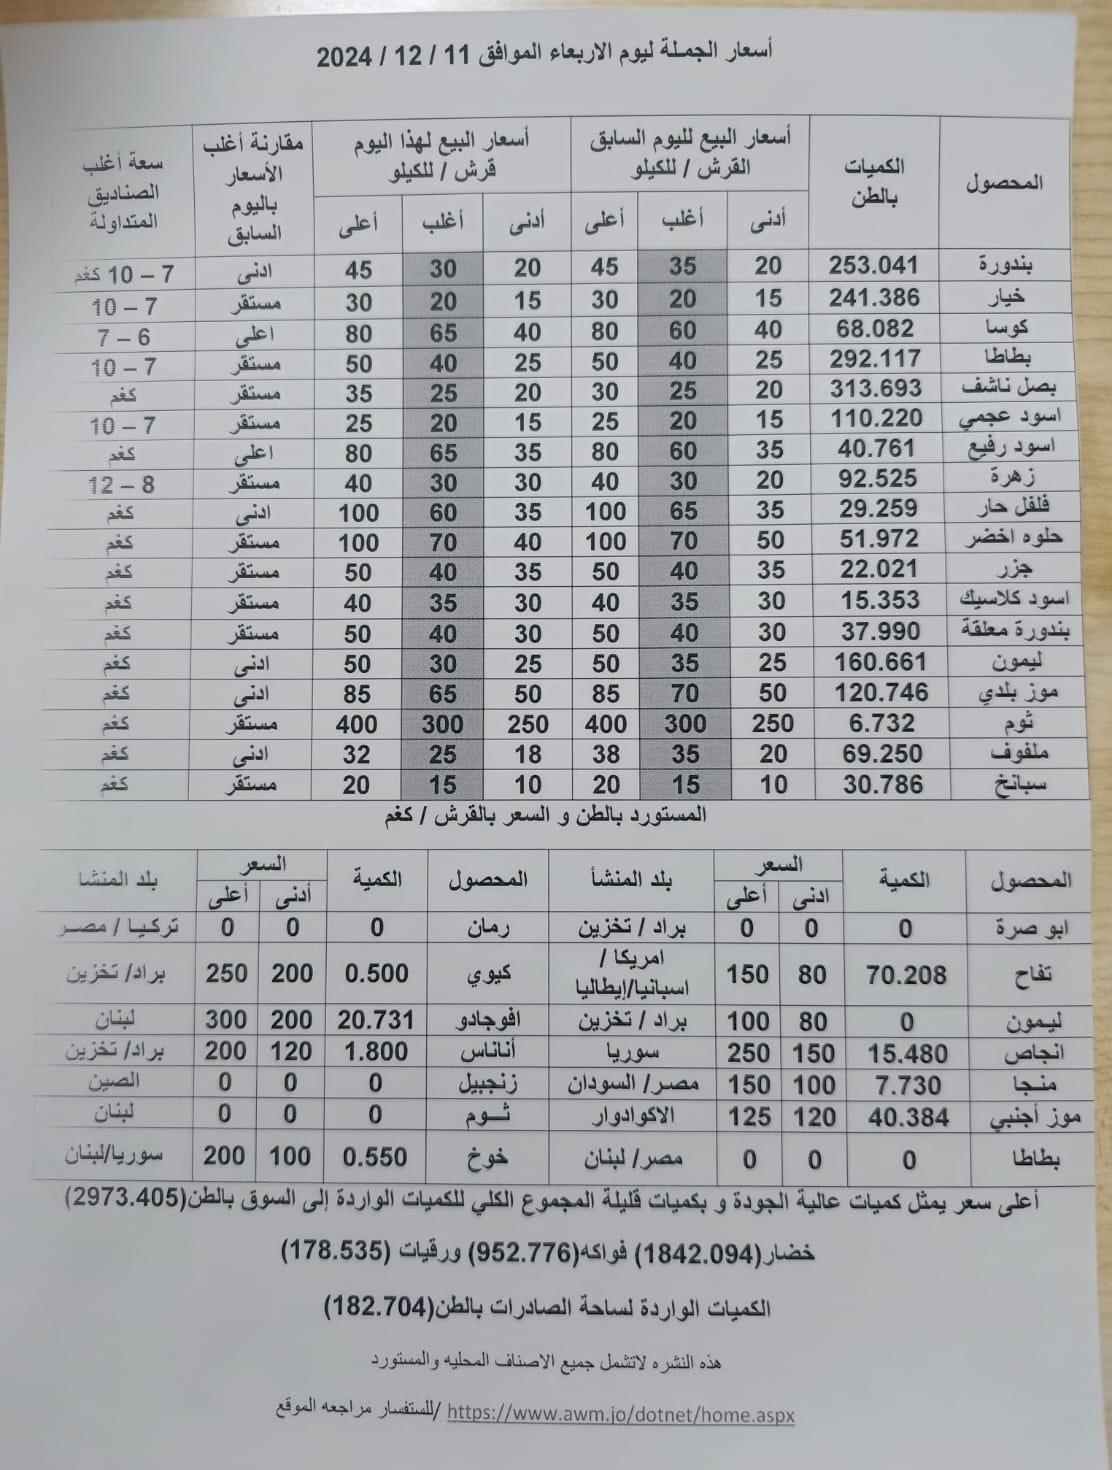 أسعار الجملة ليوم الاربعاء الموافق 11 / 12 / 2024
المحصول الكميات بالطن أسعار البيع لليوم السابق القرش / للكيلو أسعار البيع لهذا اليوم قرش / للكيلو مقارنة أغلب الأسعار باليوم السابق سعة أغلب الصناديق المتداولة
أدنى أغلب أعلى أدنى أغلب أعلى
بندورة 253.041 20 35 45 20 30 45 ادنى 7 – 10 كغم
خيار 241.386 15 20 30 15 20 30 مستقر 7 – 10
كوسا 68.082 40 60 80 40 65 80 اعلى 6 – 7
بطاطا 292.117 25 40 50 25 40 50 مستقر 7 – 10
بصل ناشف 313.693 20 25 30 20 25 35 مستقر كغم
اسود عجمي 110.220 15 20 25 15 20 25 مستقر 7 – 10
اسود رفيع 40.761 35 60 80 35 65 80 اعلى كغم
زهرة 92.525 20 30 40 30 30 40 مستقر 8 – 12
فلفل حار 29.259 35 65 100 35 60 100 ادنى كغم
حلوه اخضر 51.972 50 70 100 40 70 100 مستقر كغم
جزر 22.021 35 40 50 35 40 50 مستقر كغم
اسود كلاسيك 15.353 30 35 40 30 35 40 مستقر كغم
بندورة معلقة 37.990 30 40 50 30 40 50 مستقر كغم
ليمون 160.661 25 35 50 25 30 50 ادنى كغم
موز بلدي 120.746 50 70 85 50 65 85 ادنى كغم
ثوم 6.732 250 300 400 250 300 400 مستقر كغم
ملفوف 69.250 20 35 38 18 25 32 ادنى كغم
سبانخ 30.786 10 15 20 10 15 20 مستقر كغم
المستورد بالطن و السعر بالقرش / كغم
المحصول الكمية السعر بلد المنشأ المحصول الكمية السعر بلد المنشأ
ادنى أعلى أدنى أعلى
ابو صرة 0 0 0 براد / تخزين رمان 0 0 0 تركيا / مصر
تفاح 70.208 80 150 امريكا / اسبانيا/إيطاليا كيوي 0.500 200 250 براد/ تخزين
ليمون 0 80 100 براد / تخزين افوجادو 20.731 200 300 لبنان
انجاص 15.480 150 250 سوريا أناناس 1.800 120 200 براد/ تخزين
منجا 7.730 100 150 مصر/ السودان زنجبيل 0 0 0 الصين
موز أجنبي 40.384 120 125 الاكوادوار ثوم 0 0 0 لبنان
بطاطا 0 0 0 مصر/ لبنان خوخ 0.550 100 200 سوريا/لبنان
أعلى سعر يمثل كميات عالية الجودة و بكميات قليلة المجموع الكلي للكميات الواردة إلى السوق بالطن(2973.405)
خضار(1842.094) فواكه(952.776) ورقيات (178.535)
الكميات الواردة لساحة الصادرات بالطن(182.704)
هذه النشره لاتشمل جميع الاصناف المحليه والمستورد
https://www.awm.jo/dotnet/home.aspx /للستفسار مراجعه الموقع